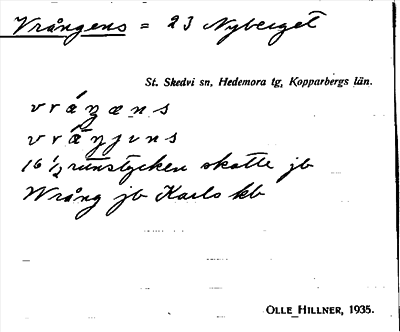 Vrångens = 23 Nyberget
St. Skedvi sn, Hedemora tg, Kopparbergs län.
16 ½ runstycken skatte jb
Wrång jb Karls kb
OLLE HILLNER, 1935.